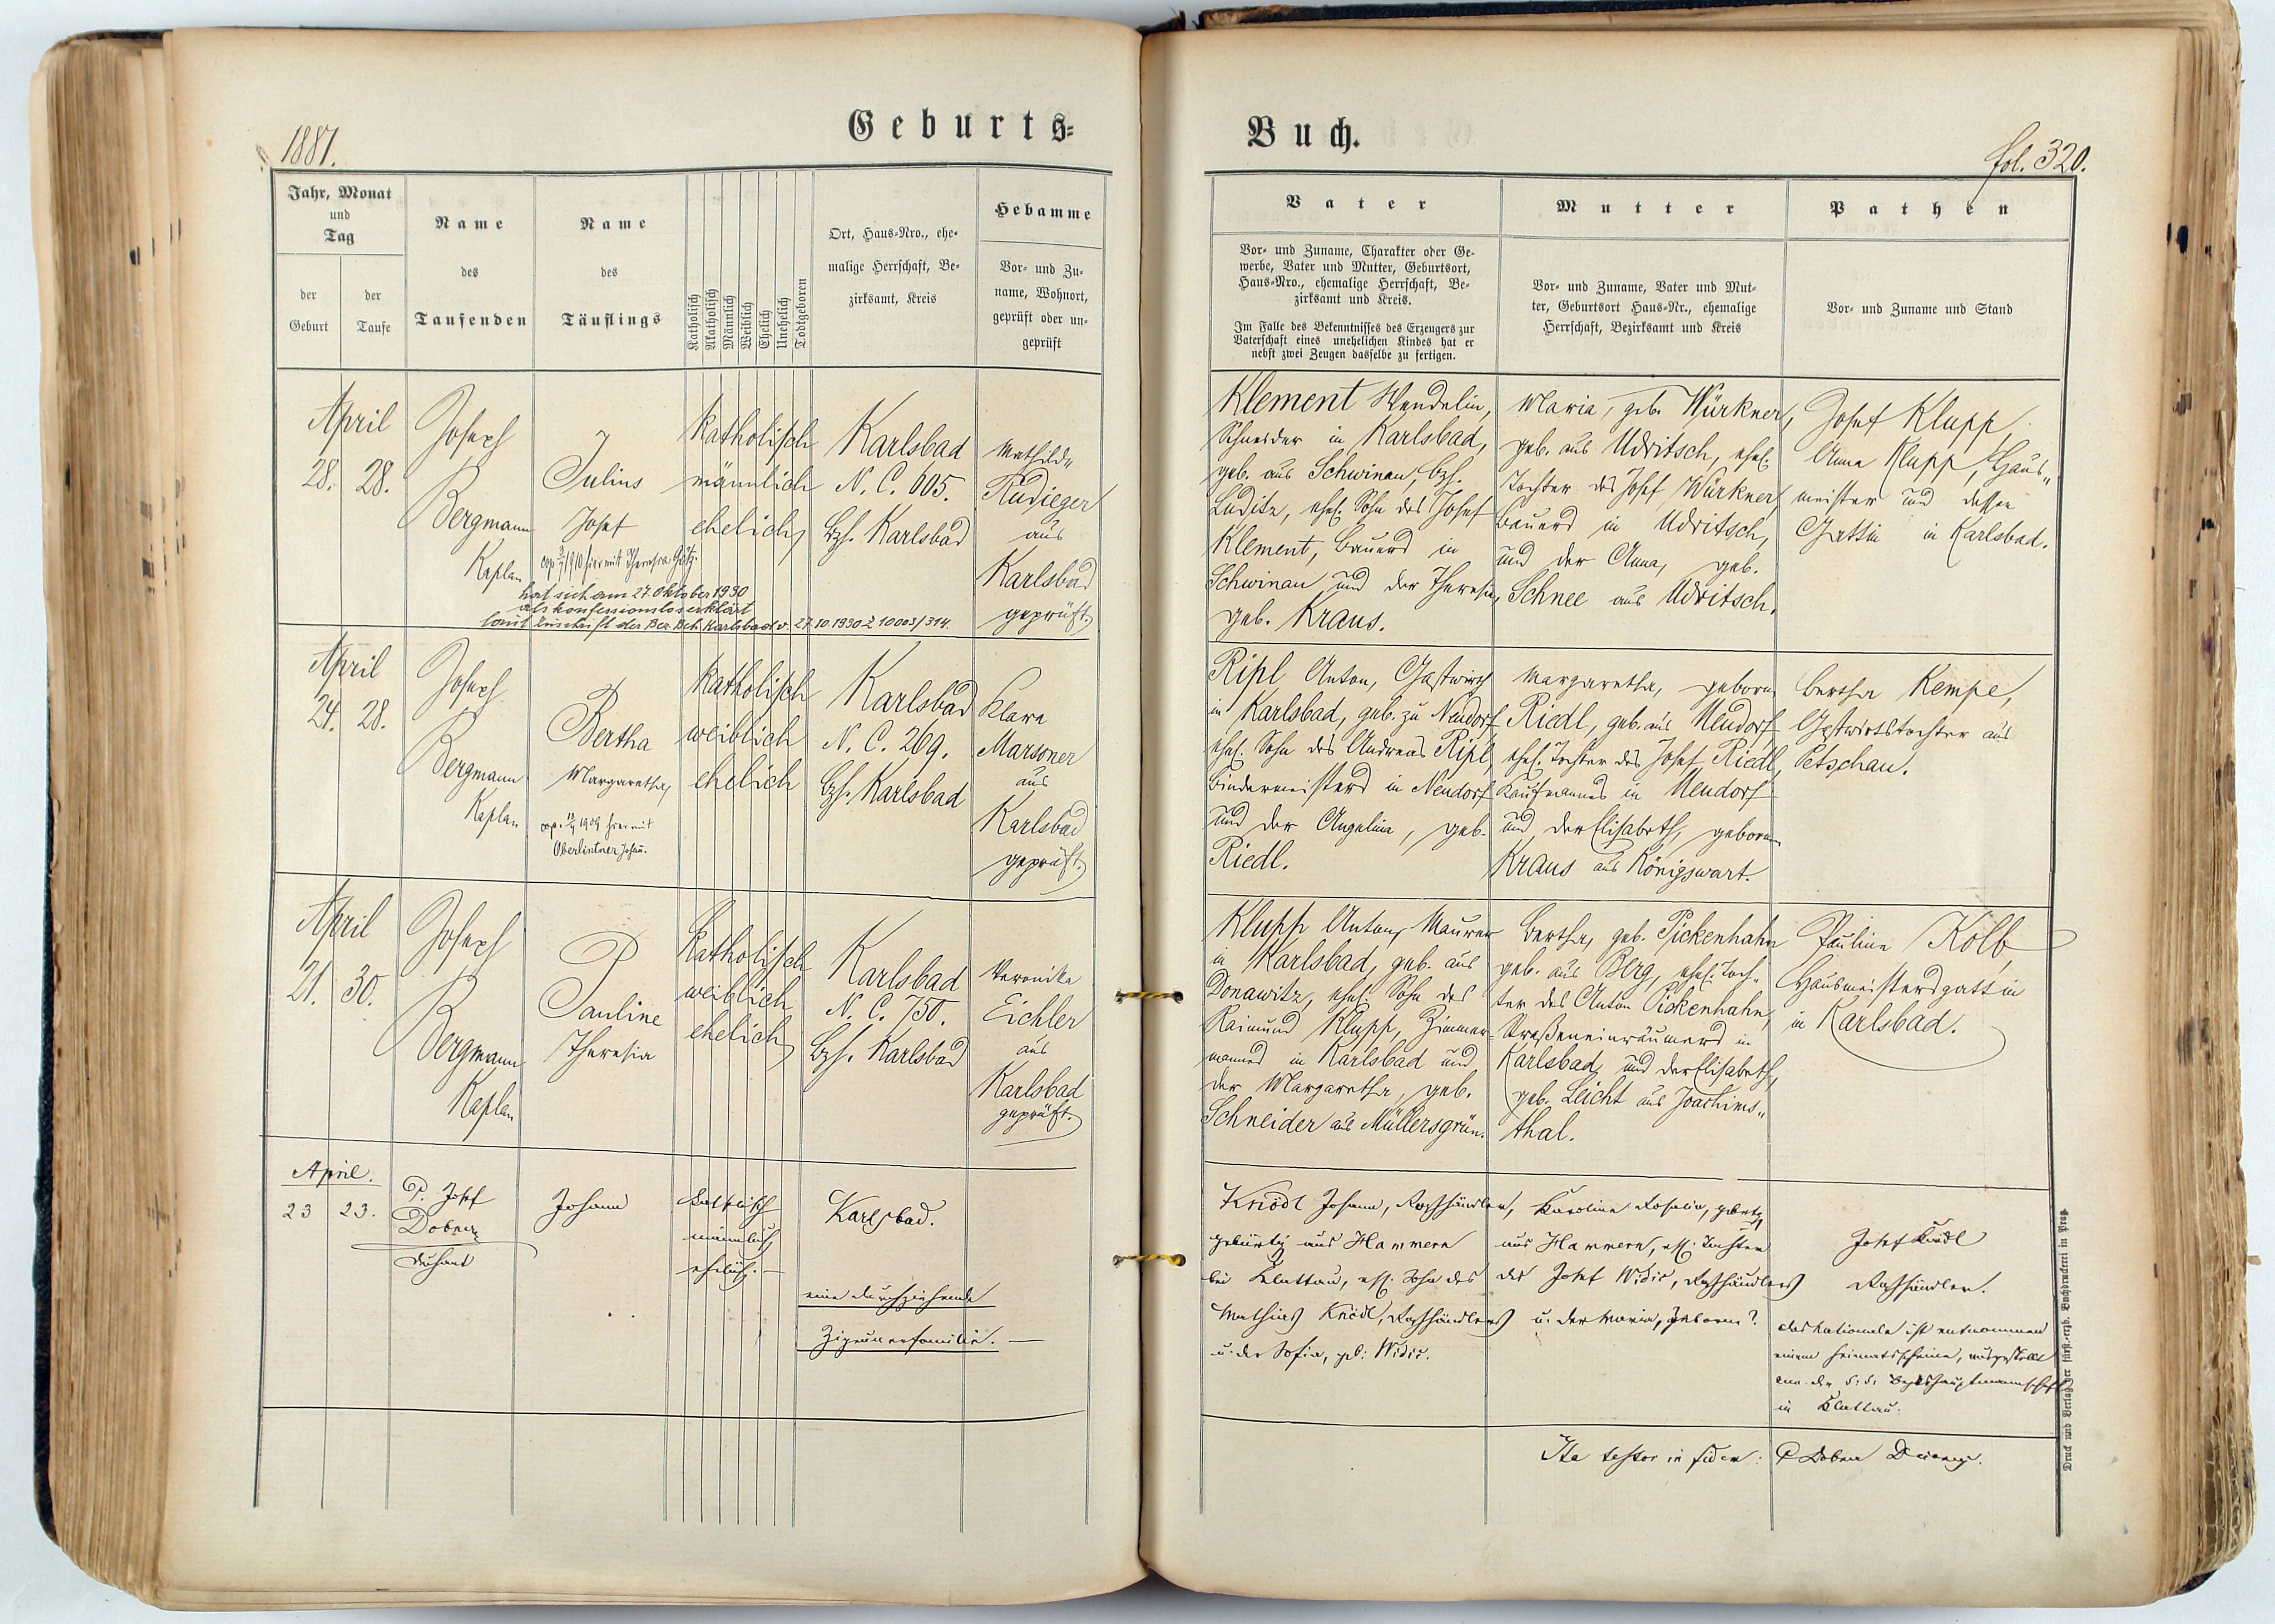 1881.
Geburts-
Buch.
fol. 320.
Jahr, Monat
und
Tag
der
Geburt
der
Taufe
Name
des
Taufenden
Name
des
Täuflings
Katholisch
Akatholisch
Männlich
Weiblich
Ehelich
Unehelich
Todtgeboren
Ort, Haus-Nro., ehe-
malige Herrschaft, Be-
zirksamt, Kreis
Hebamme
Vor- und Zu-
name, Wohnort,
geprüft oder un-
geprüft
Vater
Vor- und Zuname, Charakter oder Ge-
werbe, Vater und Mutter, Geburtsort,
Haus-Nro., ehemalige Herrschaft, Be-
zirksamt und Kreis.
Im Falle des Bekenntnisses des Erzeugers zur
Vaterschaft eines unehelichen Kindes hat er
nebst zwei Zeugen dasselbe zu fertigen.
Mutter
Vor- und Zuname, Vater und Mut-
ter, Geburtsort Haus-Nr., ehemalige
Herrschaft, Bezirksamt und Kreis
Pathen
Vor- und Zuname und Stand
April
28. 28.
Joseph
Bergmann
Kaplan
Julius
Josef
cop. 3/7 1910 hier mit Theresia Götz.
hat sich am 27. Oktober 1930
als konfessionslos erklärt
laut Zuschrift der Bez. Beh. Karlsbad v. 27.10.1930 Z 10003/314.
katholisch
männlich
ehelich
Karlsbad
N. C. 605.
Bzh. Karlsbad
Mathilde
Rudieger
aus
Karlsbad
geprüft.
Klement Wendelin,
Schneider in Karlsbad,
geb. aus Schwinau, Bzh.
Luditz, ehel. Sohn des Josef
Klement, Bauers in
Schwinau und der Theresia,
geb. Kraus.
Maria, geb. Würkner,
geb. aus Udritsch, ehel.
Tochter des Josef Würkner,
Bauers in Udritsch,
und der Anna, geb.
Schnee aus Udritsch.
Josef Klupp,
Anna Klupp, Haus-
meister und dessen
Gattin in Karlsbad.
April
24. 28.
Joseph
Bergmann
Kaplan
Bertha
Margaretha
cop. 19/4 1909 hier mit
Oberlintner Johann.
katholisch
weiblich
ehelich
Karlsbad
N. C. 269.
Bzh. Karlsbad
Klara
Marsoner
aus
Karlsbad
geprüft.
Ripl Anton, Gastwirth
in Karlsbad, geb. zu Neudorf
ehel. Sohn des Andreas Ripl,
Bindermeisters in Neudorf
und der Angelina, geb.
Riedl.
Margaretha, geborne
Riedl, geb. aus Neudorf
ehel. Tochter des Josef Riedl,
Kaufmanns in Neudorf
und der Elisabeth, geborne
Kraus aus Königswart.
Bertha Kempe,
Gastwirtstochter aus
Petschau.
April
21. 30.
Joseph
Bergmann
Kaplan
Pauline
Theresia
katholisch
weiblich
ehelich
Karlsbad
N. C. 750.
Bzh. Karlsbad
Veronika
Eichler
aus
Karlsbad
geprüft.
Klupp Anton, Maurer
in Karlsbad, geb. aus
Donawitz, ehel. Sohn des
Raimund Klupp, Zimmer-
manns in Karlsbad und
der Margaretha, geb.
Schneider aus Müllersgrün.
Bertha, geb. Pickenhahn
geb. aus Berg, ehel. Toch-
ter des Anton Pickenhahn,
Straßeneinräumers in
Karlsbad, und der Elisabeth,
geb. Leicht aus Joachims-
thal.
Pauline Kolb,
Hausmeistersgattin
in Karlsbad.
April.
23 23.
P. Josef
Dobner
Dechant
Johann
katholisch
männlich
ehelich.
Karlsbad.
eine durchziehende
Zigeunerfamilie.
Knödl Johann,
gebürtig aus Hammern
bei Klattau, ehl. Sohn des
Mathias Knödl,
u. der Sofia, geb: Widic.
Karolina Rosalia,
aus Hammern, ehl. Tochter
des Josef Widic,
u. der Maria, geborne?
Josef Knödl
das Nationale ist entnommen
einem Heimatsscheine, ausgestellt
von der k. k. Bezirkshauptmannschaft
in Klattau.
Ita testor in fidem: P Dobner
Druck und Verlag der fürst.-erzb. Buchdruckerei in Prag.